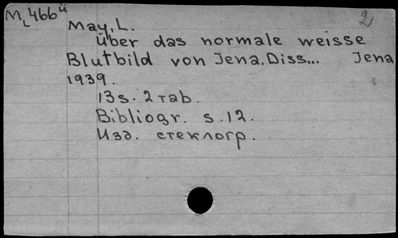 M466ü
2
May, L.
Über das normale weisse
Blutbild von Jena. Diss... Jena
1939.
13s. 2 таб.
Bibliogr. s. 12.
Изд. стеклогр.